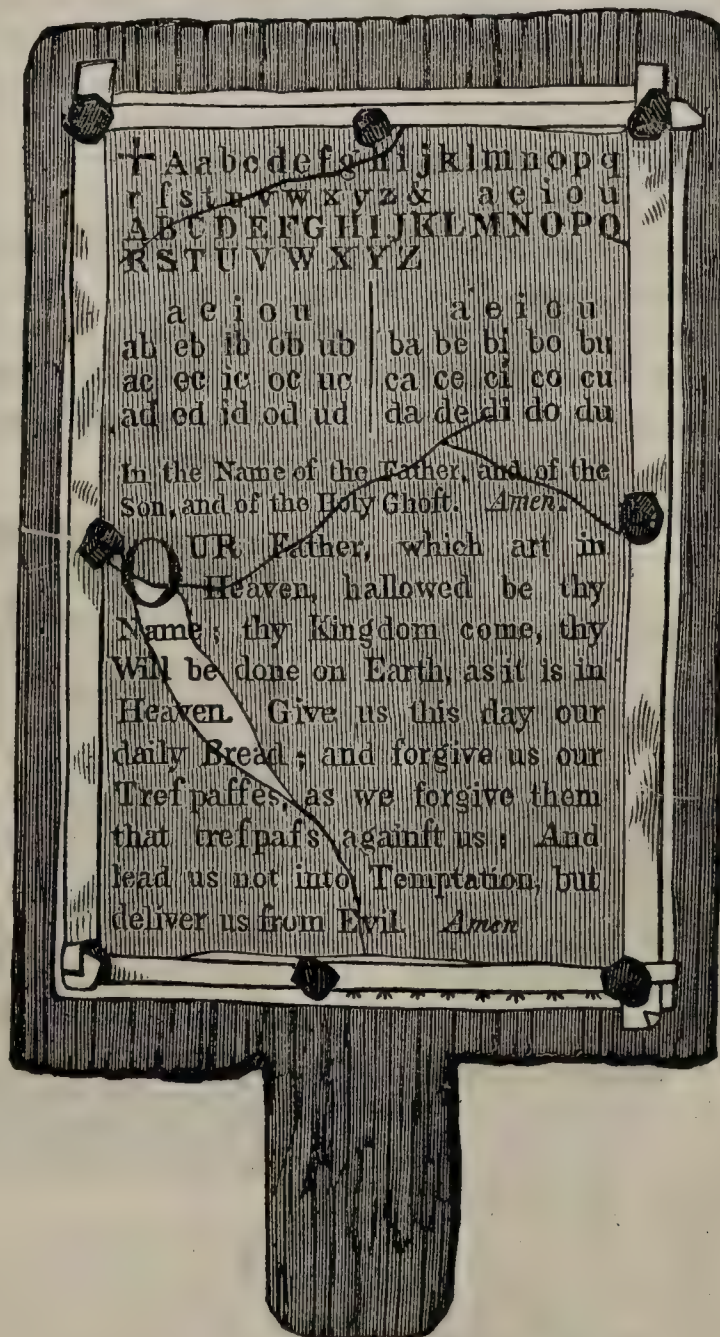 ✝ A a b c d e f g h i j k l m n o p q
r ſ s t u v w x y z & a e i o u
A B C D E F G H I J K L M N O P Q
R S T U V W X Y Z
a e i o u | a e i o u
ab eb ib ob ub | ba be bi bo bu
ac ec ic oc uc | ca ce ci co cu
ad ed id od ud | da de di do du
In the Name of the Father, and of the
Son, and of the Holy Ghoſt. Amen.
OUR Father, which art in
Heaven, hallowed be thy
Name; thy Kingdom come, thy
Will be done on Earth, as it is in
Heaven. Give us this day our
daily Bread; and forgive us our
Treſpaſſes, as we forgive them
that treſpaſs againſt us: And
lead us not into Temptation, but
deliver us from Evil. Amen